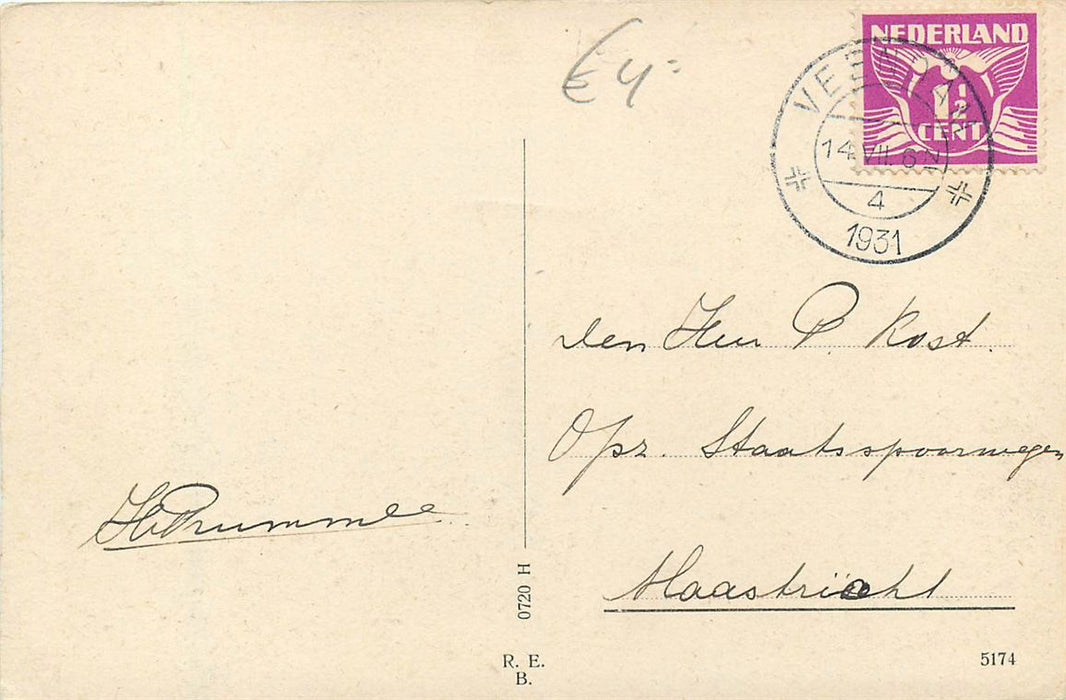 € 4,-
NEDERLAND
1½
CENT
VEENDAM
14 VII. 6N
4
1931
den Heer P. Kost.
Opz. Staatsspoorwegen
Maastricht
0720 H
R. E.
B.
5174